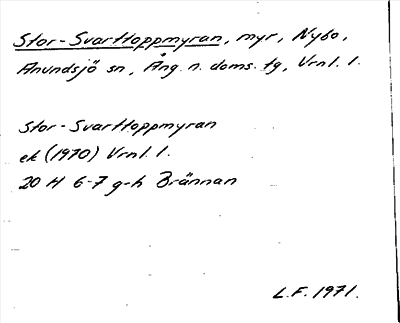 Stor-Svarttoppmyran, myr, Nybo,
Anundsjö sn, Ång. n. doms. tg, Vrnl. l.
Stor-Svarttoppmyran
ek (1970) Vrnl. l.
20 H 6-7 g-h Brännan
L.F. 1971.